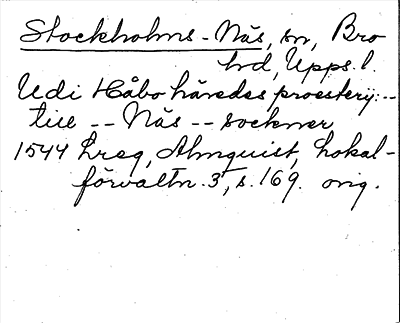 Stockholms-Näs, sn, Bro
hd, Upps. l.
Udi Håbo häredes proestery:--
till -- Näs -- sockner
1544 Lreg, Almquist, Lokal-
förvaltn. 3, s. 169. orig.